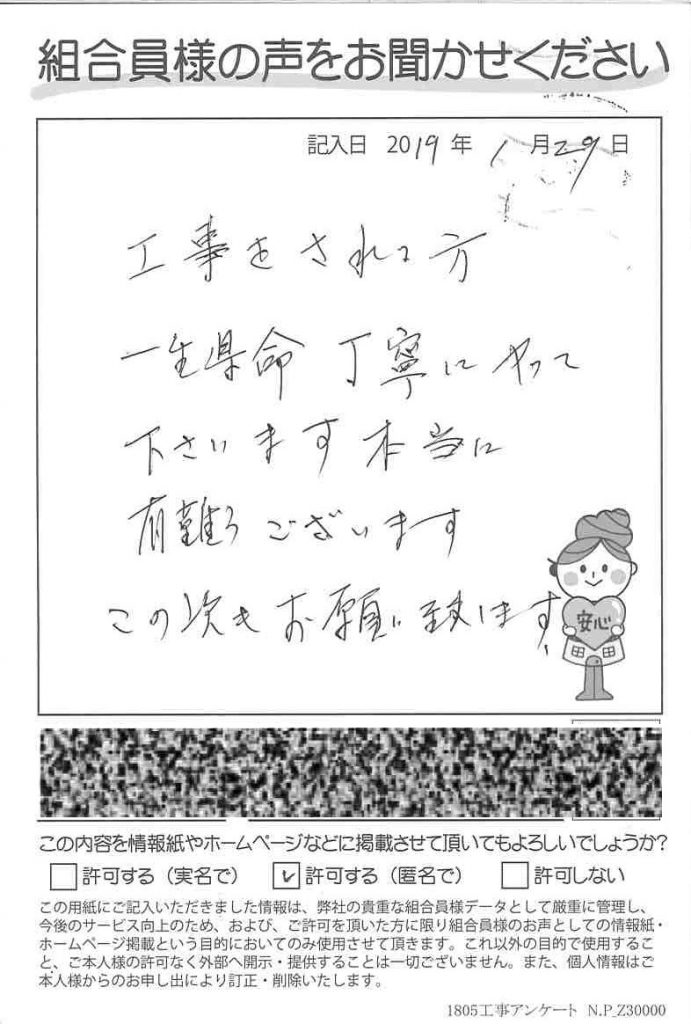 組合員様の声をお聞かせください
記入日 2019年 1月29日
工事をされる方
一生県命 丁寧にやって
下さいます 本当に
有難うございます
この次もお願い致します
安心
この内容を情報紙やホームページなどに掲載させて頂いてもよろしいでしょうか?
許可する（実名で） ✓許可する（匿名で） 許可しない
この用紙にご記入いただきました情報は、弊社の貴重な組合員様データとして厳重に管理し、
今後のサービス向上のため、および、ご許可を頂いた方に限り組合員様のお声としての情報紙・
ホームページ掲載という目的においてのみ使用させて頂きます。これ以外の目的で使用するこ
と、ご本人様の許可なく外部へ開示・提供することは一切ございません。また、個人情報はご
本人様からのお申し出により訂正・削除いたします。
1805工事アンケート N.P_Z30000